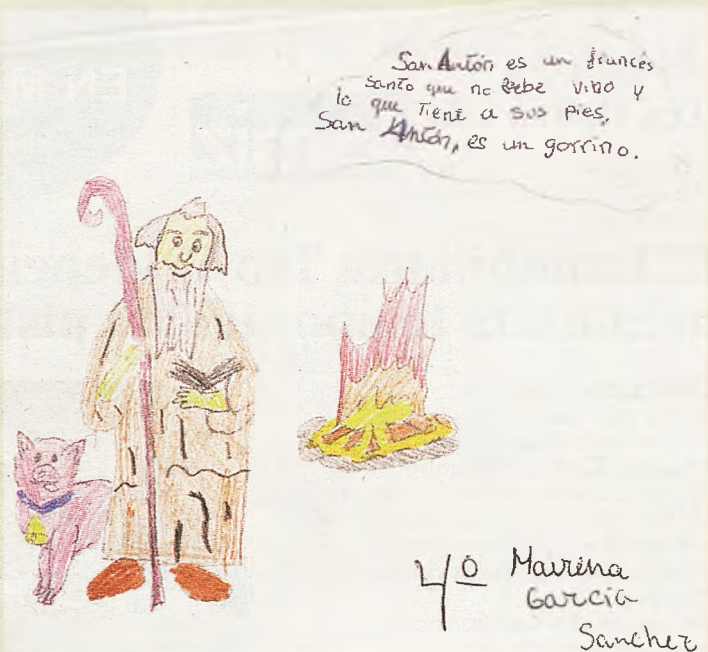 San Antón es un francés
santo que no bebe vino y
lo que tiene a sus pies,
San Antón, es un gorrino.
4º Mairena
García
Sanchez